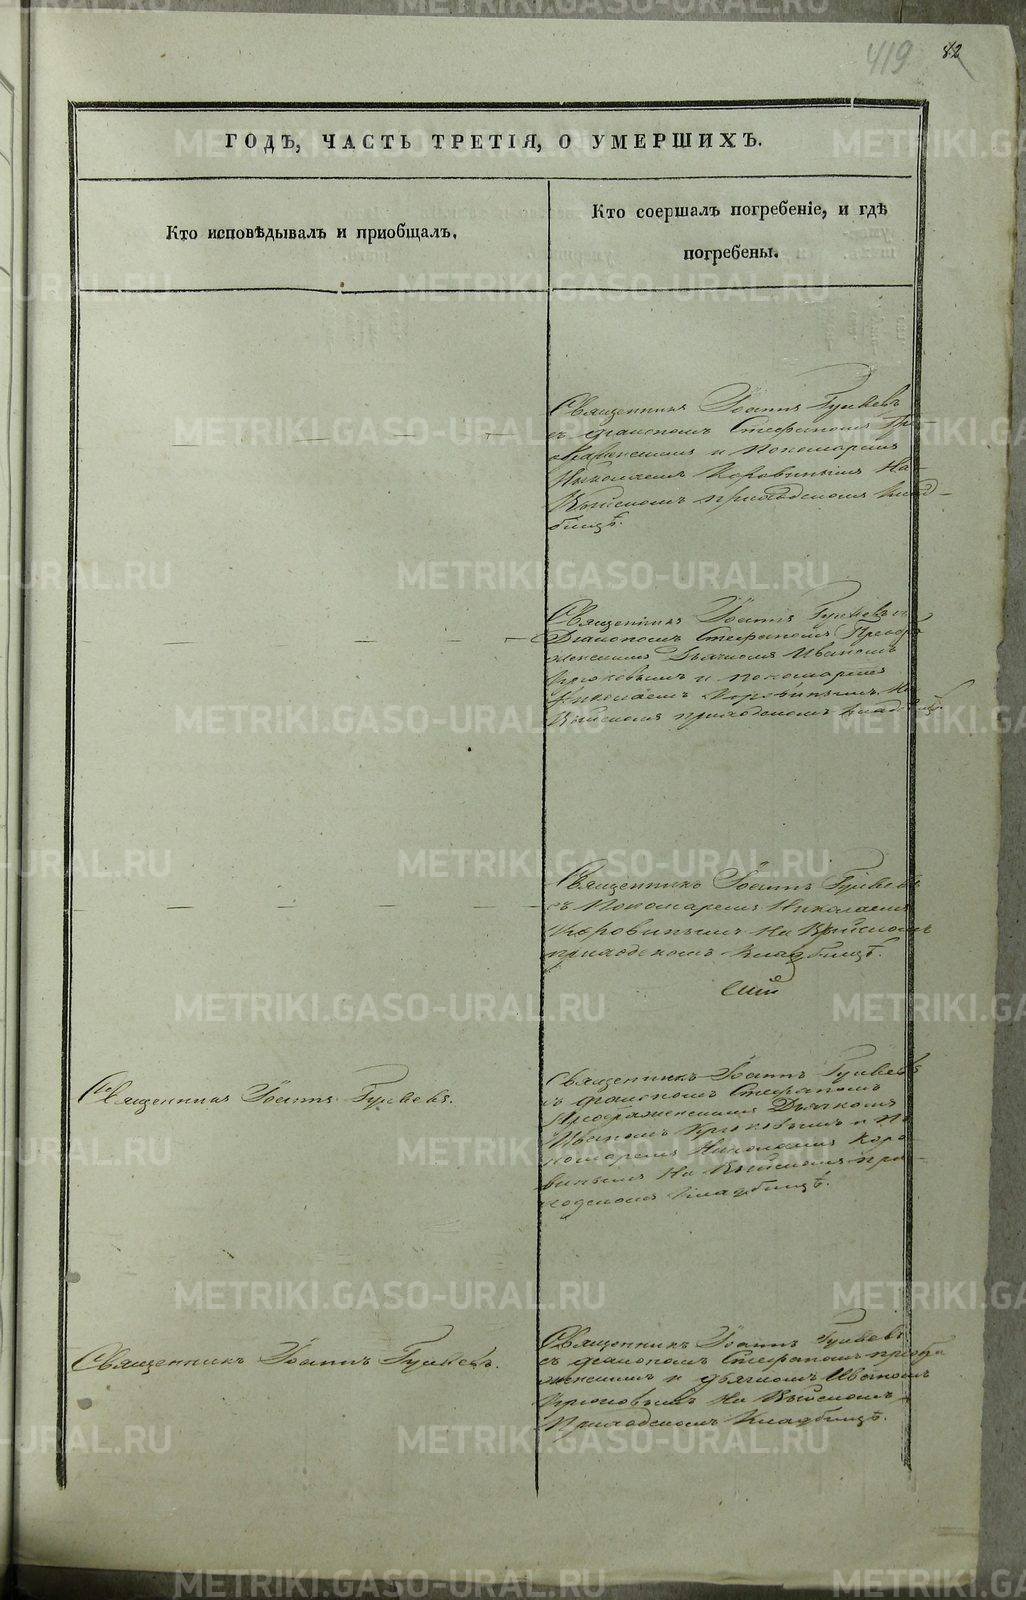 419 82
ГОДЪ, ЧАСТЬ ТРЕТІЯ, О УМЕРШИХЪ.
Кто исповѣдывалъ и пріобщалъ.
Кто соершалъ погребеніе, и гдѣ
погребены.
Священникъ Іоаннъ
съ діакономъ Стефаномъ Пре-
ображенскимъ и Пономаремъ
Николаемъ Коровинымъ На
Выйскомъ приходскомъ клад-
бищѣ.
Священникъ Іоаннъ
Діакономъ Стефаномъ Преобра
женскимъ Дьячкомъ Иваномъ
Крюковымъ и пономаремъ
Николаемъ Коровинымъ На
Выйскомъ приходскомъ кладбищѣ.
Священникъ Іоаннъ
съ Пономаремъ Николаемъ
Коровинымъ На Выйскомъ
приходскомъ Кладбищѣ.
Священникъ Іоаннъ
Священникъ Іоаннъ
съ діакономъ Стефаномъ
Преображенскимъ Дьячкомъ
Иваномъ Крюковымъ и По
номаремъ Николаемъ Коро
винымъ На Выйскомъ при-
ходскомъ Кладбищѣ.
Священникъ Іоаннъ
Священникъ Іоаннъ
съ діакономъ Стефаномъ преобра
женскимъ и дьячкомъ Иваномъ
Крюковымъ На Выйскомъ
Приходскомъ Кладбищѣ.
METRIKI.GASO-URAL.RU